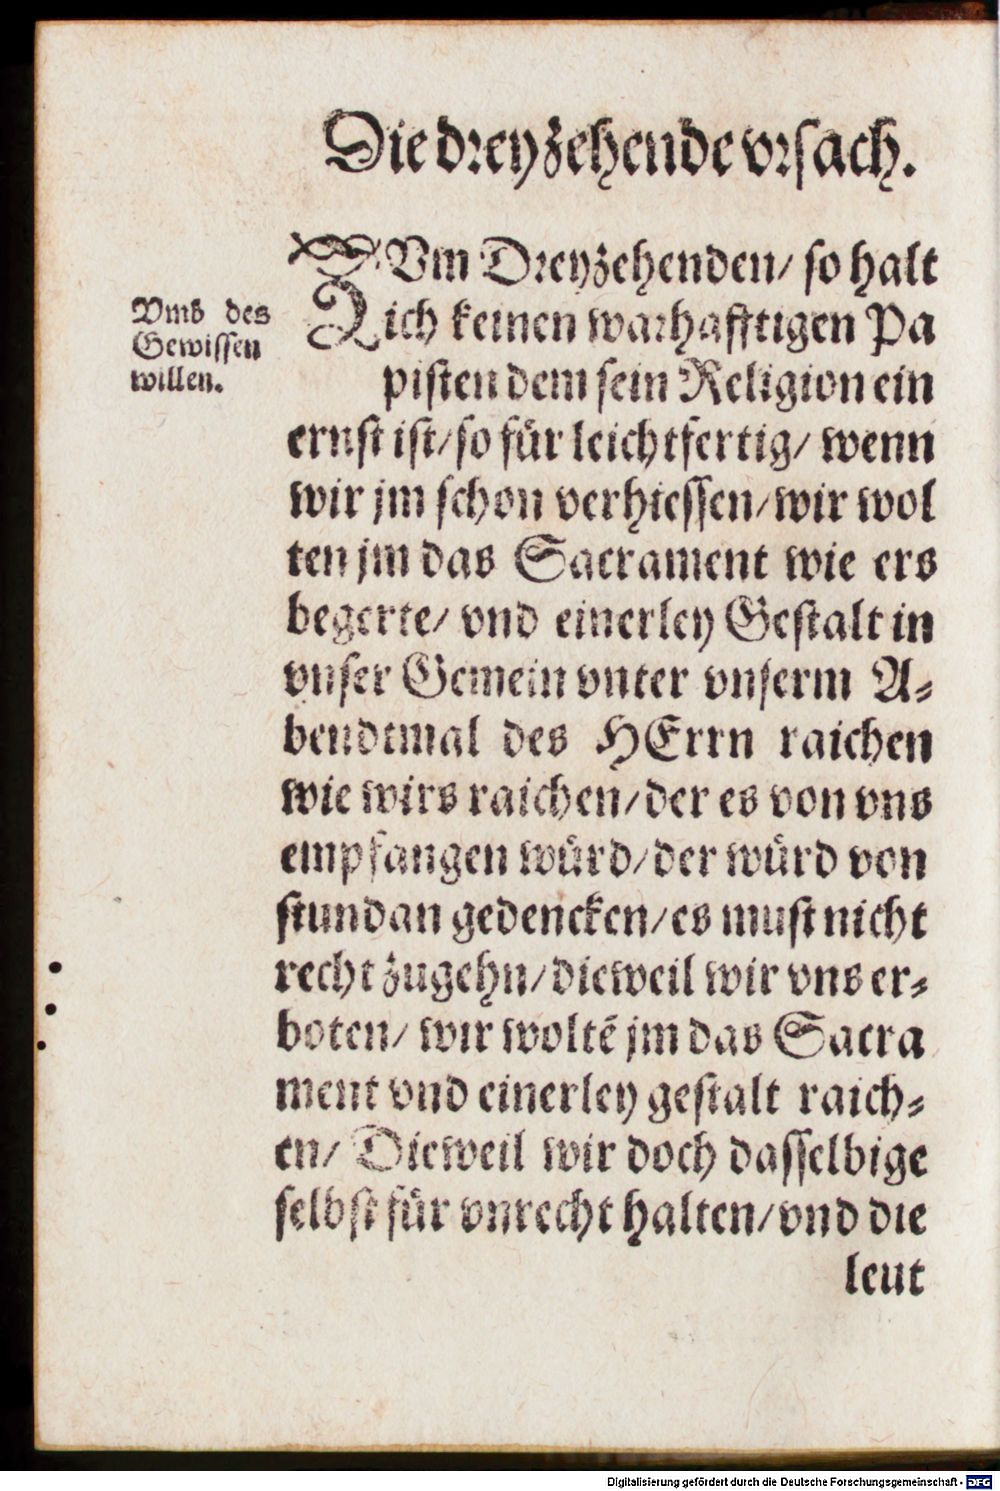 Die dreyzehende vrsach.
ZVm Dreyzehenden/ so halt
ich keinen warhafftigen Pa
pisten dem sein Religion ein
ernst ist/ so für leichtfertig/ wenn
wir jm schon verhiessen/ wir wol
ten jm das Sacrament wie ers
begerte/ vnd einerley Gestalt in
vnser Gemein vnter vnserm A-
bendtmal des HErrn raichen
wie wirs raichen/ der es von vns
empfangen würd/ der würd von
stundan gedencken/ es must nicht
recht zugehn/ dieweil wir vns er-
boten/ wir woltē jm das Sacra
ment vnd einerley gestalt raich-
en/ Dieweil wir doch dasselbige
selbst für vnrecht halten/ vnd die
leut
Vmb des
Gewissen
willen.
Digitalisierung gefördert durch die Deutsche Forschungsgemeinschaft - DFG